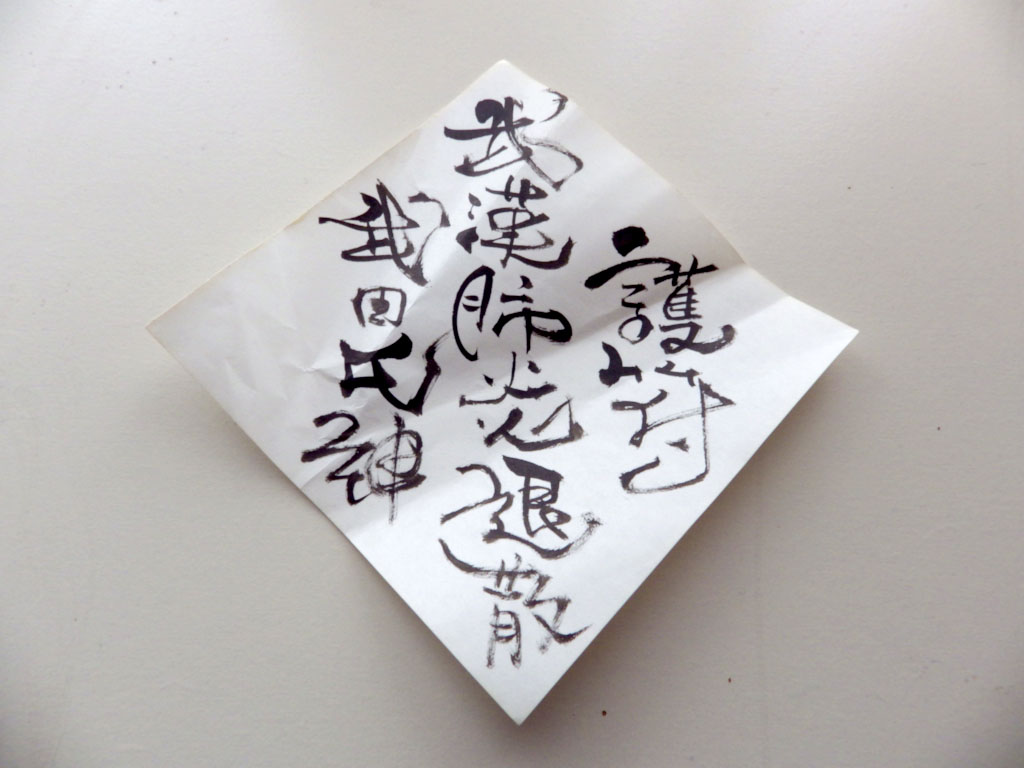 護符
武漢肺炎退散
我田氏神